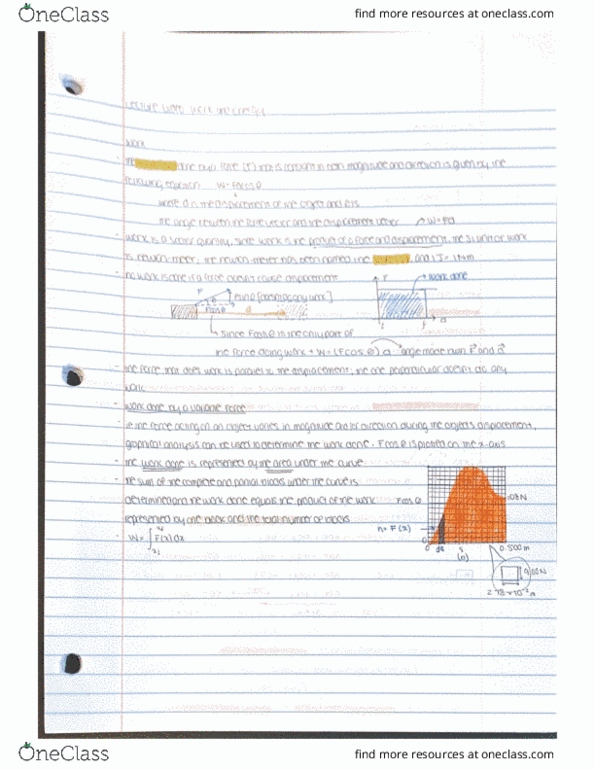 OneClass
find more resources at oneclass.com
work
the work done by a force (F) that is constant in both magnitude and direction is given by the
following equation W=Fdcosθ
where d is the displacement of the object and θ is
the angle between the force vector and the displacement vector W=Fd
- work is a scalar quantity, since work is the product of a force and displacement, the SI unit of work
is newton-meter, the newton-meter has been named the and 1J = 1N·m
- no work is done if a force doesn't cause displacement
F work done
θ
Fcosθ d
since Fcosθ is the only part of
the force doing work → W=(Fcosθ)d angle made between F and d
- the force that does work is parallel to the displacement, the one perpendicular doesn't do any
work
- work done by a variable force
- if the force acting on an object varies in magnitude and/or direction during the object's displacement,
graphical analysis can be used to determine the work done. Fcosθ is plotted on the x-axis
- the work done is represented by the area under the curve
- the sum of the complete and partial blocks under the curve is
determined and the work done equals the product of the work Fcosθ
represented by one block and the total number of blocks
h=F(x)
- W= ∫ F(x)dx
0 dx s 0.500m
2.78×10⁻² m
OneClass
find more resources at oneclass.com